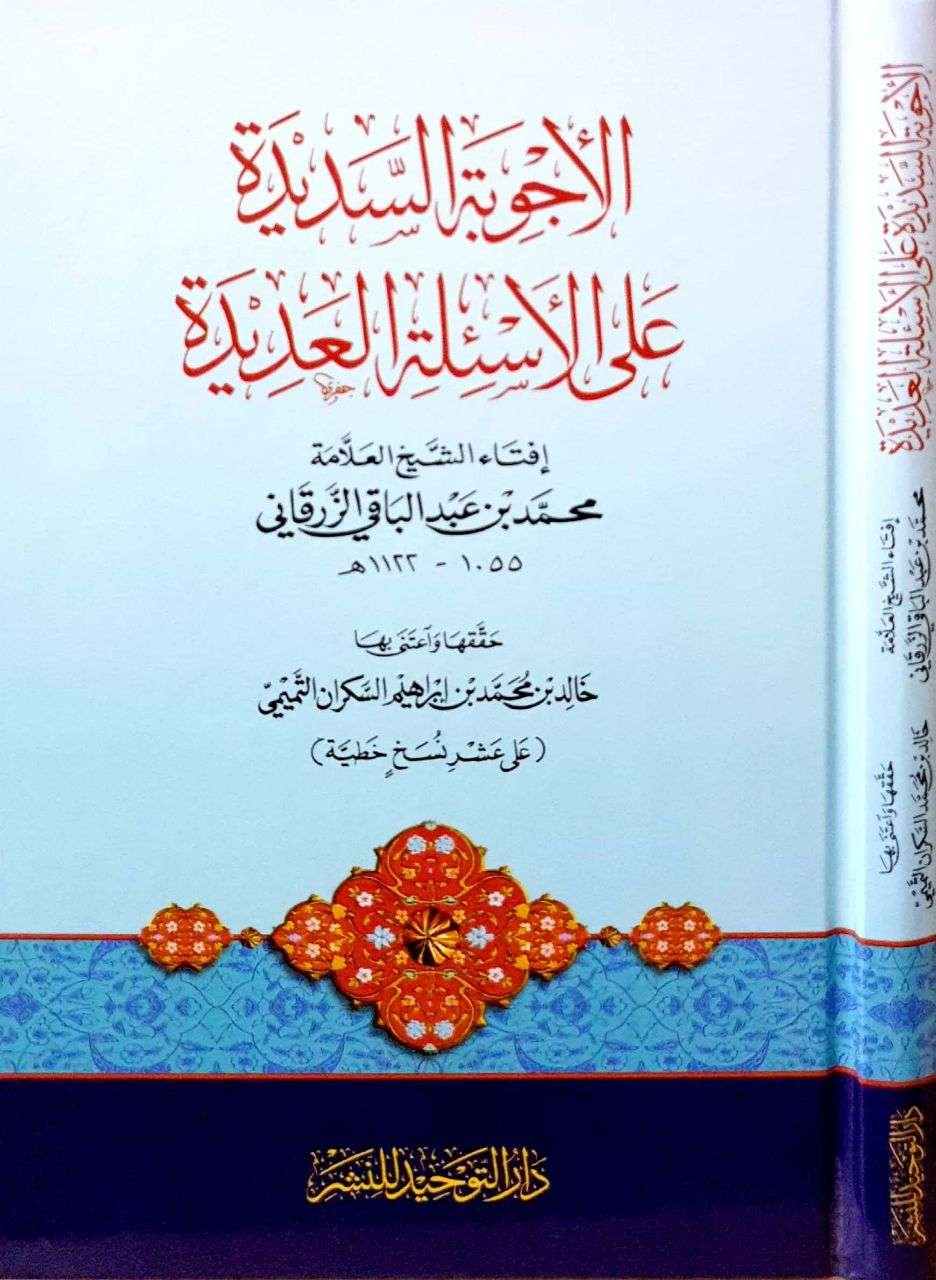 الأَجْوِبَة السَّدِيْدَة
عَلى الأَسْئِلَة العَدِيْدَة
جعفري
إفتاء الشَّيخ العَلَّامَة
محمَّد بْن عَبْد البَاقي الزَّرقَاني
١٠٥٥ - ١١٢٢ هـ
حَقَّقهَا وَاعتَنَى بِهَا
خَالِد بْن مُحَمَّد بْن إبرَاهيْم السَّكرَان التَّمِيْمِيّ
(عَلى عَشْرِ نُسَخٍ خَطيَّة)
دَارُ التَّوحِيْد للنَّشر
الأَجْوِبَة السَّدِيْدَة عَلى الأَسْئِلَة العَدِيْدَة
إفتاء الشَّيخ العَلَّامَة
محمَّد بْن عَبْد البَاقي الزَّرقَاني
حَقَّقهَا وَاعتَنَى بِهَا
خَالِد بْن مُحَمَّد السَّكرَان التَّمِيْمِيّ
دَارُ التَّوحِيْد للنَّشر